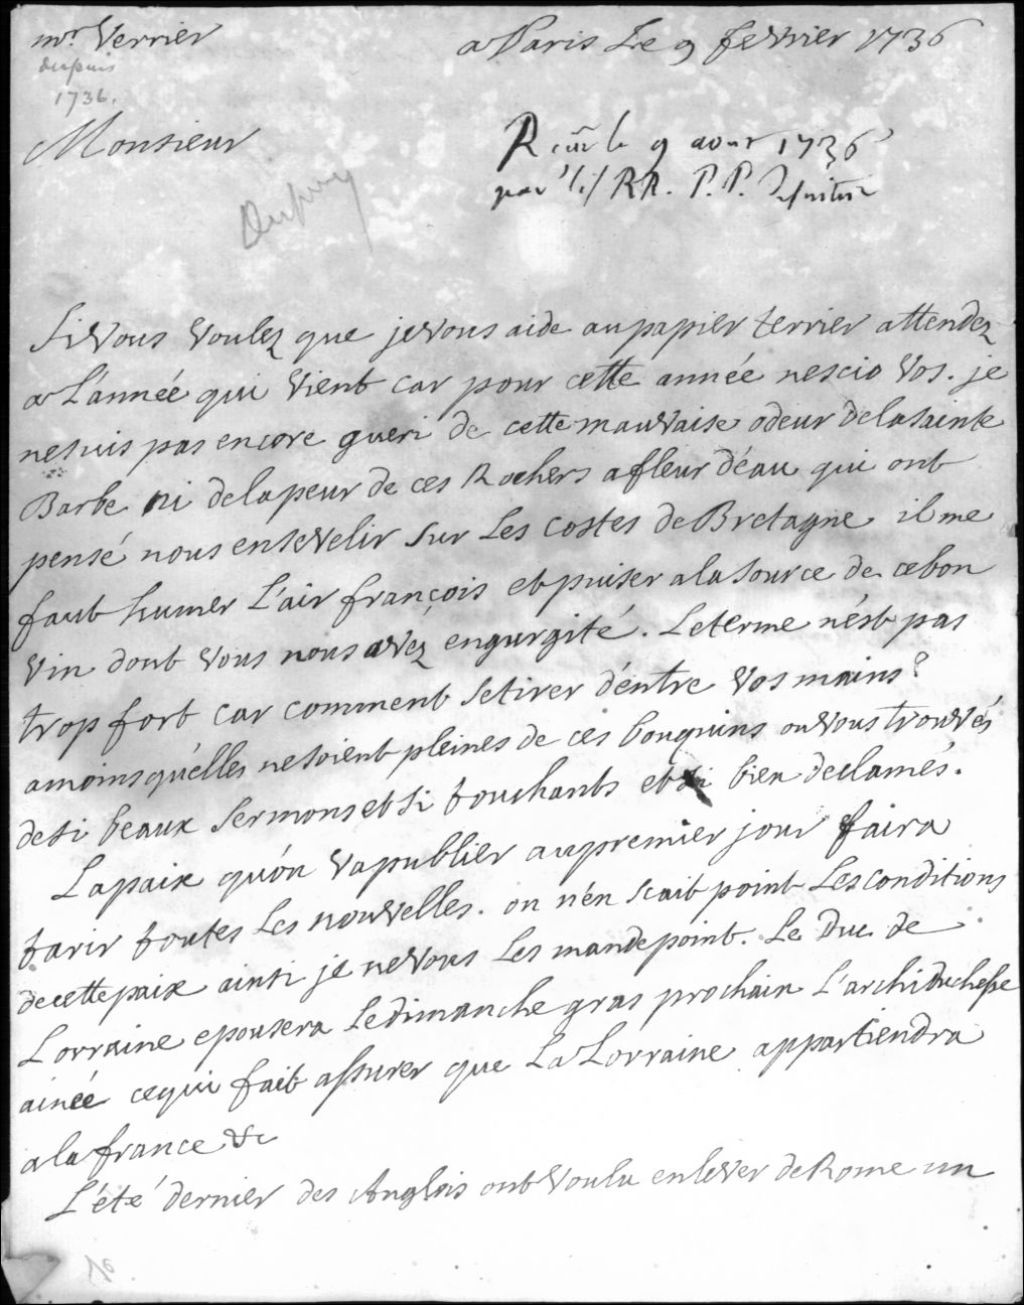 mr. Verrier
a Paris Le 9 fevrier 1736
depuis
1736.
Monsieur
R le 9 aout 1736
par RR. P. P.
Dupuy
Si vous voulez que je vous aide au papier terrier attendez
a L'année qui vient car pour cette année nescio vos. je
ne suis pas encore gueri de cette mauvaise odeur de la sainte
Barbe ni de la peur de ces Rochers a fleur d'éau qui ont
pensé nous ensevelir sur Les costes de Bretagne il me
faut humer L'air françois et puiser a la source de ce bon
vin dont vous nous avez engurgité. Le terme n'ést pas
trop fort car comment se tirer d'éntre vos mains?
a moins qu'élles ne soient pleines de ces bouquins ou vous trouvés
de si beaux sermons et si touchants et si bien declamés.
La paix qu'ón va publier au premier jour faira
tarir toutes Les nouvelles. on n'én scait point Les conditions
de cette paix ainsi je ne vous Les mande point. Le Duc de
Lorraine epousera Le dimanche gras prochain L'archiduchesse
ainée ce qui fait assurer que La Lorraine appartiendra
a la france &c
L'été dernier des Anglois ont voulu enlever de Rome un